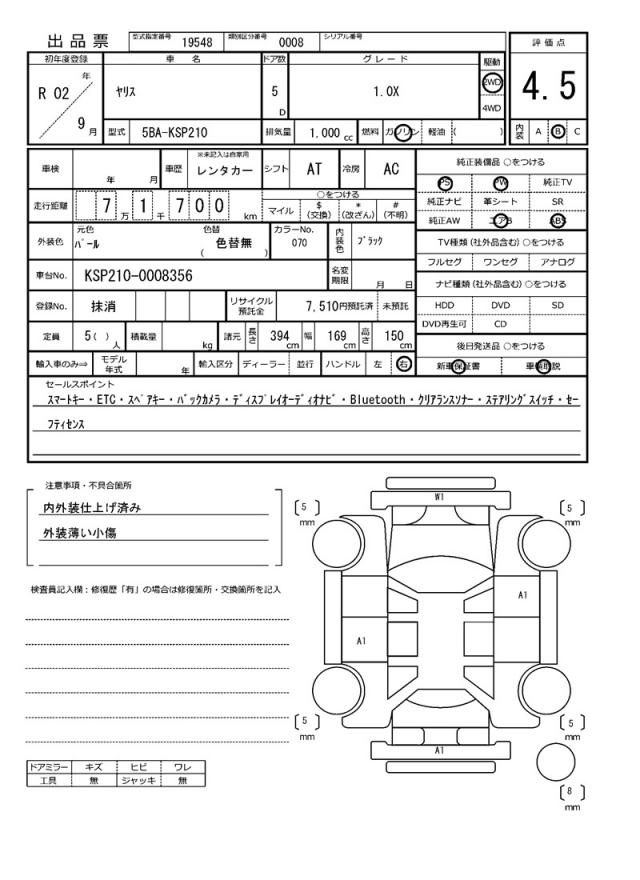 出品票 型式指定番号 19548 類別区分番号 0008 シリアル番号
評価点
4.5
初年度登録 車名 ドア数 グレード 駆動
R 02 年 9 月 ヤリス 5 D 1.0X 2WD 4WD
型式 5BA-KSP210 排気量 1.000 cc 燃料 ガソリン 軽油 ( ) 内装 A B C
車検 年 月 車歴 ※未記入は自家用 レンタカー シフト AT 冷房 AC
走行距離 7 万 1 千 7 0 0 km ○をつける マイル $ (交換) * (改ざん) # (不明)
外装色 元色 パール 色替 色替無 ( ) カラーNo. 070 内装色 ブラック
車台No. KSP210-0008356 名変期限 月 日
登録No. 抹消 リサイクル預託金 7,510円預託済 未預託
定員 5( ) 人 積載量 kg 諸元 長さ 394 cm 幅 169 cm 高さ 150 cm
輸入車のみ⇒ モデル年式 年 輸入区分 ディーラー 並行 ハンドル 左 右
純正装備品 ○をつける
PS PW 純正TV
純正ナビ 革シート SR
純正AW エアB ABS
TV種類 (社外品含む) ○をつける
フルセグ ワンセグ アナログ
ナビ種類 (社外品含む) ○をつける
HDD DVD SD
DVD再生可 CD
後日発送品 ○をつける
新車保証書 車輌取説
セールスポイント
スマートキー・ETC・スペアキー・バックカメラ・ディスプレイオーディオナビ・Bluetooth・クリアランスソナー・ステアリングスイッチ・セー
フティセンス
注意事項・不具合箇所
内外装仕上げ済み
外装薄い小傷
検査員記入欄：修復歴「有」の場合は修復箇所・交換箇所を記入
ドアミラー キズ ヒビ ワレ
工具 無 ジャッキ 無
W1
[5] mm
[5] mm
A1
A1
[5] mm
[5] mm
A1
[8] mm